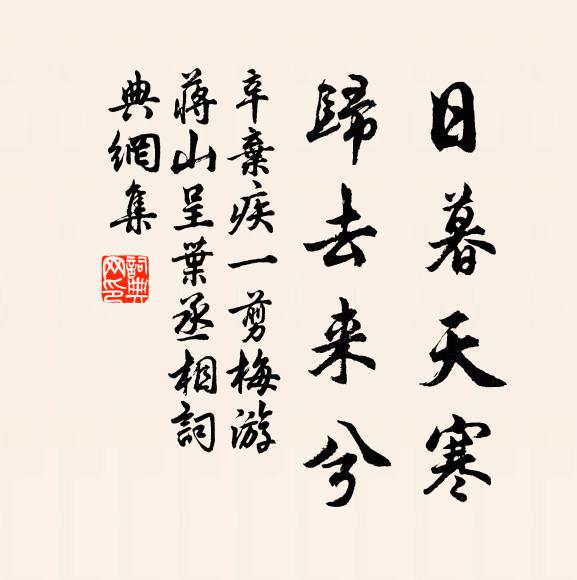 日暮天寒
歸去来兮
辛棄疾一剪梅游
蔣山呈葉丞相詞
典網集
詞典
网印